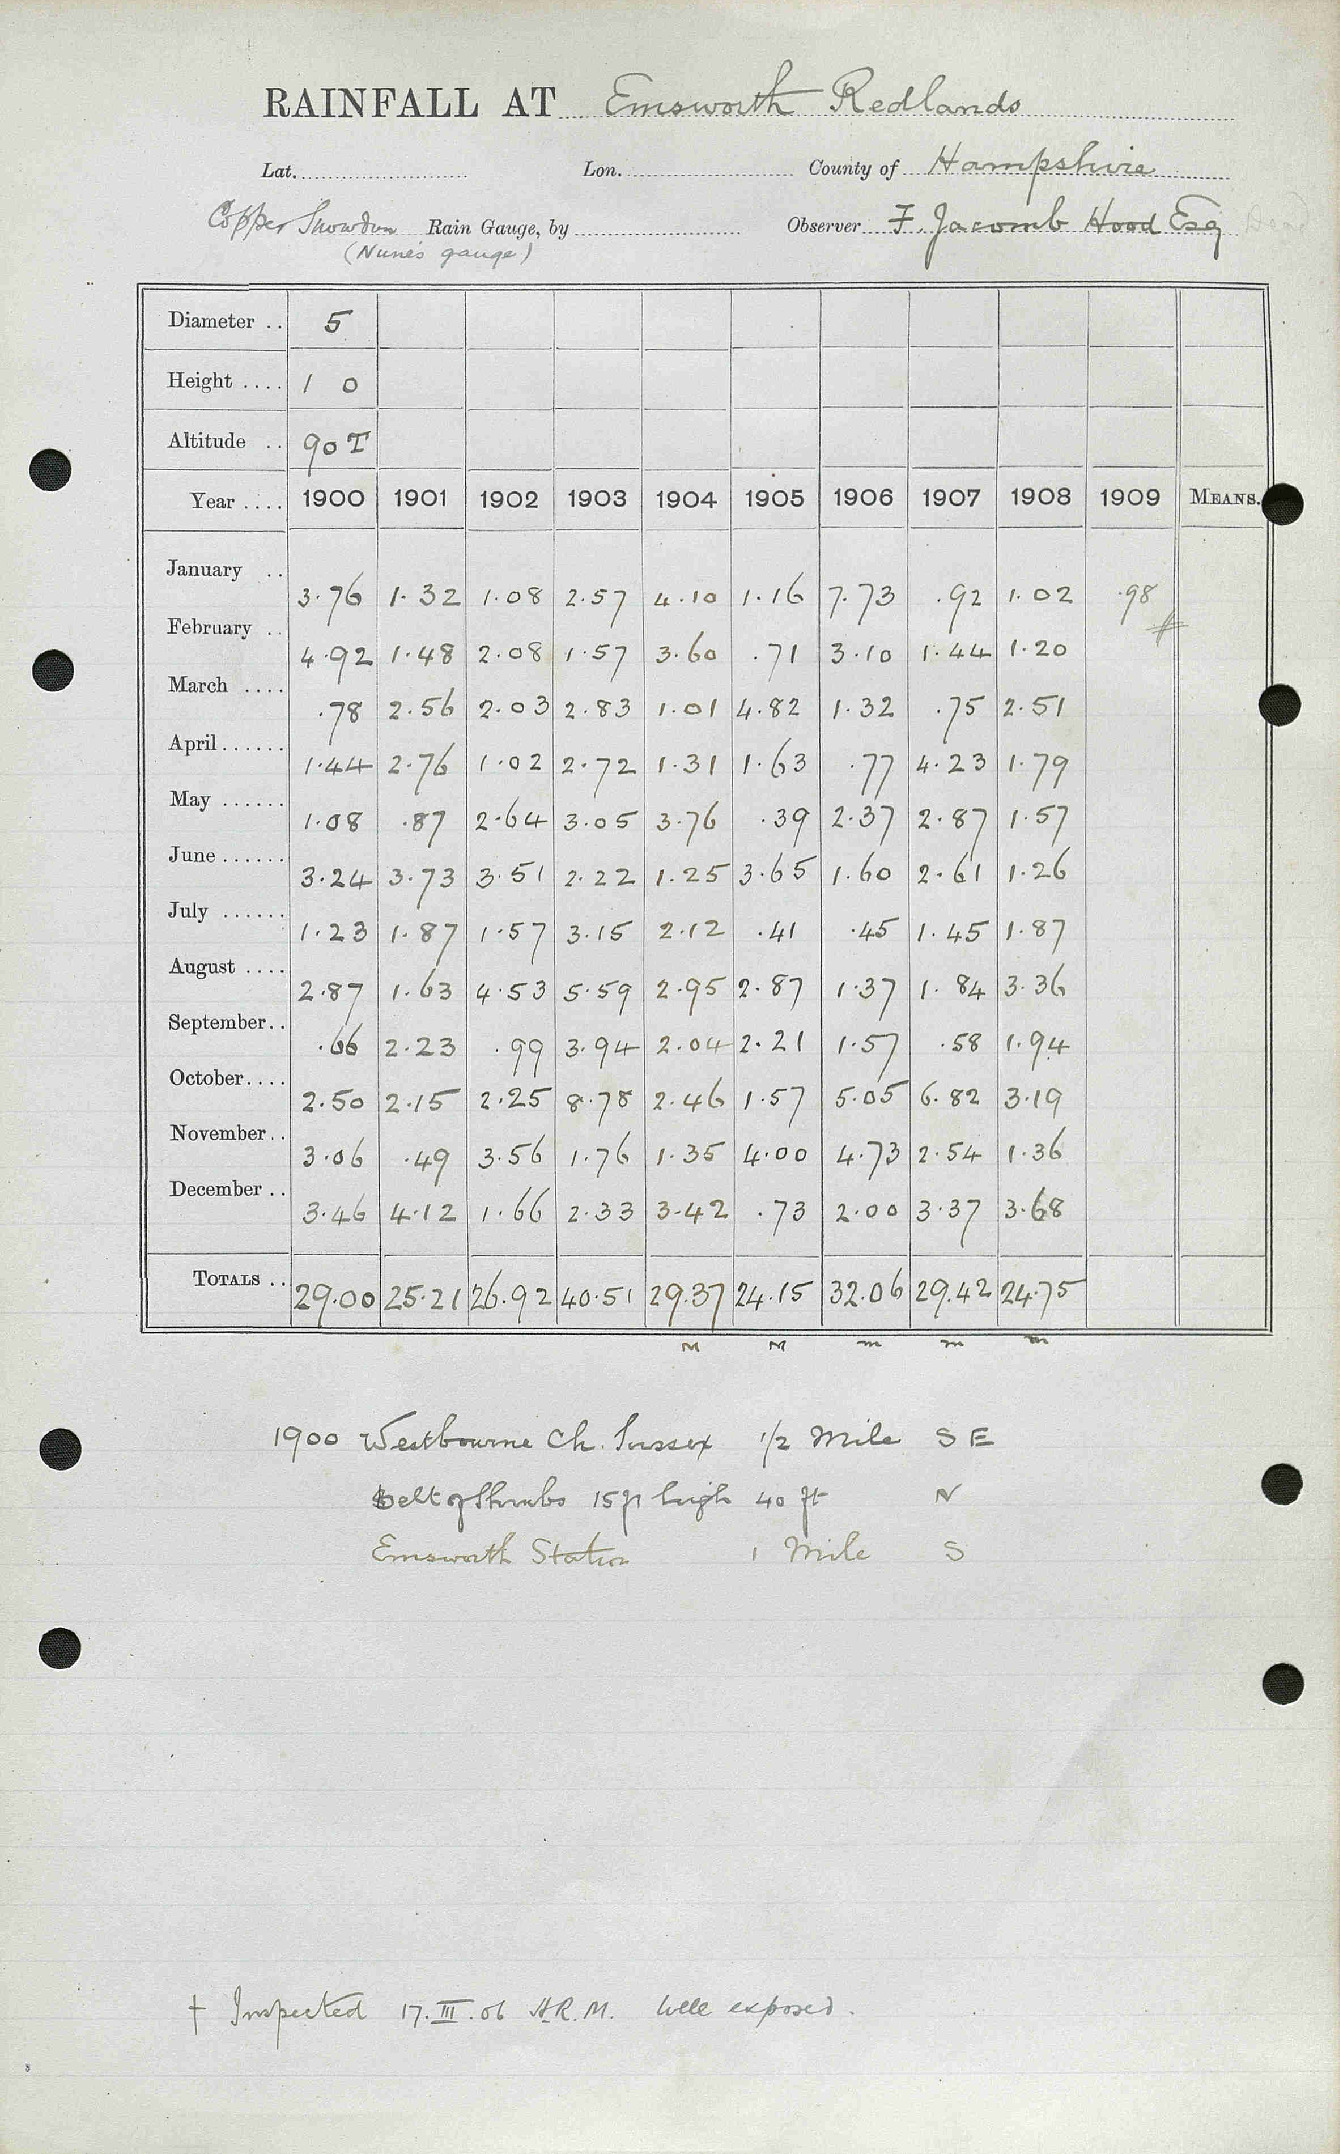 RAINFALL AT Emsworth Redlands
Lat. Lon. County of Hampshire
Copper Snowdon Rain Gauge, by Observer F. Jacomb Hood Esq
(Nune's gauge)
Diameter .. 5
Height .... 1 0
Altitude .. 90 T
Year .... 1900 1901 1902 1903 1904 1905 1906 1907 1908 1909 MEANS.
January .. 3.76 1.32 1.08 2.57 4.10 1.16 7.73 .92 1.02 .98
February .. 4.92 1.48 2.08 1.57 3.60 .71 3.10 1.44 1.20
March .... .78 2.56 2.03 2.83 1.01 4.82 1.32 .75 2.51
April ...... 1.44 2.76 1.02 2.72 1.31 1.63 .77 4.23 1.79
May ...... 1.08 .87 2.64 3.05 3.76 .39 2.37 2.87 1.57
June ...... 3.24 3.73 3.51 2.22 1.25 3.65 1.60 2.61 1.26
July ...... 1.23 1.87 1.57 3.15 2.12 .41 .45 1.45 1.87
August .... 2.87 1.63 4.53 5.59 2.95 2.87 1.37 1.84 3.36
September .. .66 2.23 .99 3.94 2.04 2.21 1.57 .58 1.94
October .... 2.50 2.15 2.25 8.78 2.46 1.57 5.05 6.82 3.19
November .. 3.06 .49 3.56 1.76 1.35 4.00 4.73 2.54 1.36
December .. 3.46 4.12 1.66 2.33 3.42 .73 2.00 3.37 3.68
TOTALS .. 29.00 25.21 26.92 40.51 29.37 24.15 32.06 29.42 24.75
M M m m m
1900 Westbourne Ch. Sussex 1/2 Mile S E
Belt of Shrubs 15 ft high 40 ft N
Emsworth Station 1 Mile S
† Inspected 17.III.06 H.R.M. Well exposed.